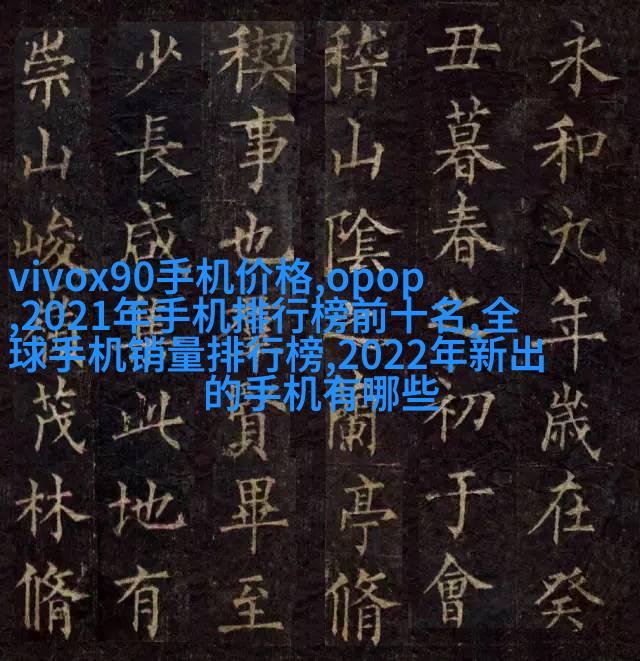 永和九年歲在癸
丑暮春初于會
稽山陰蘭亭脩
稧事也賢畢至
少長咸此地有
崇山峻茂林脩
vivox90手机价格,opop
,2021年手机排行榜前十名,全
球手机销量排行榜,2022年新出
的手机有哪些